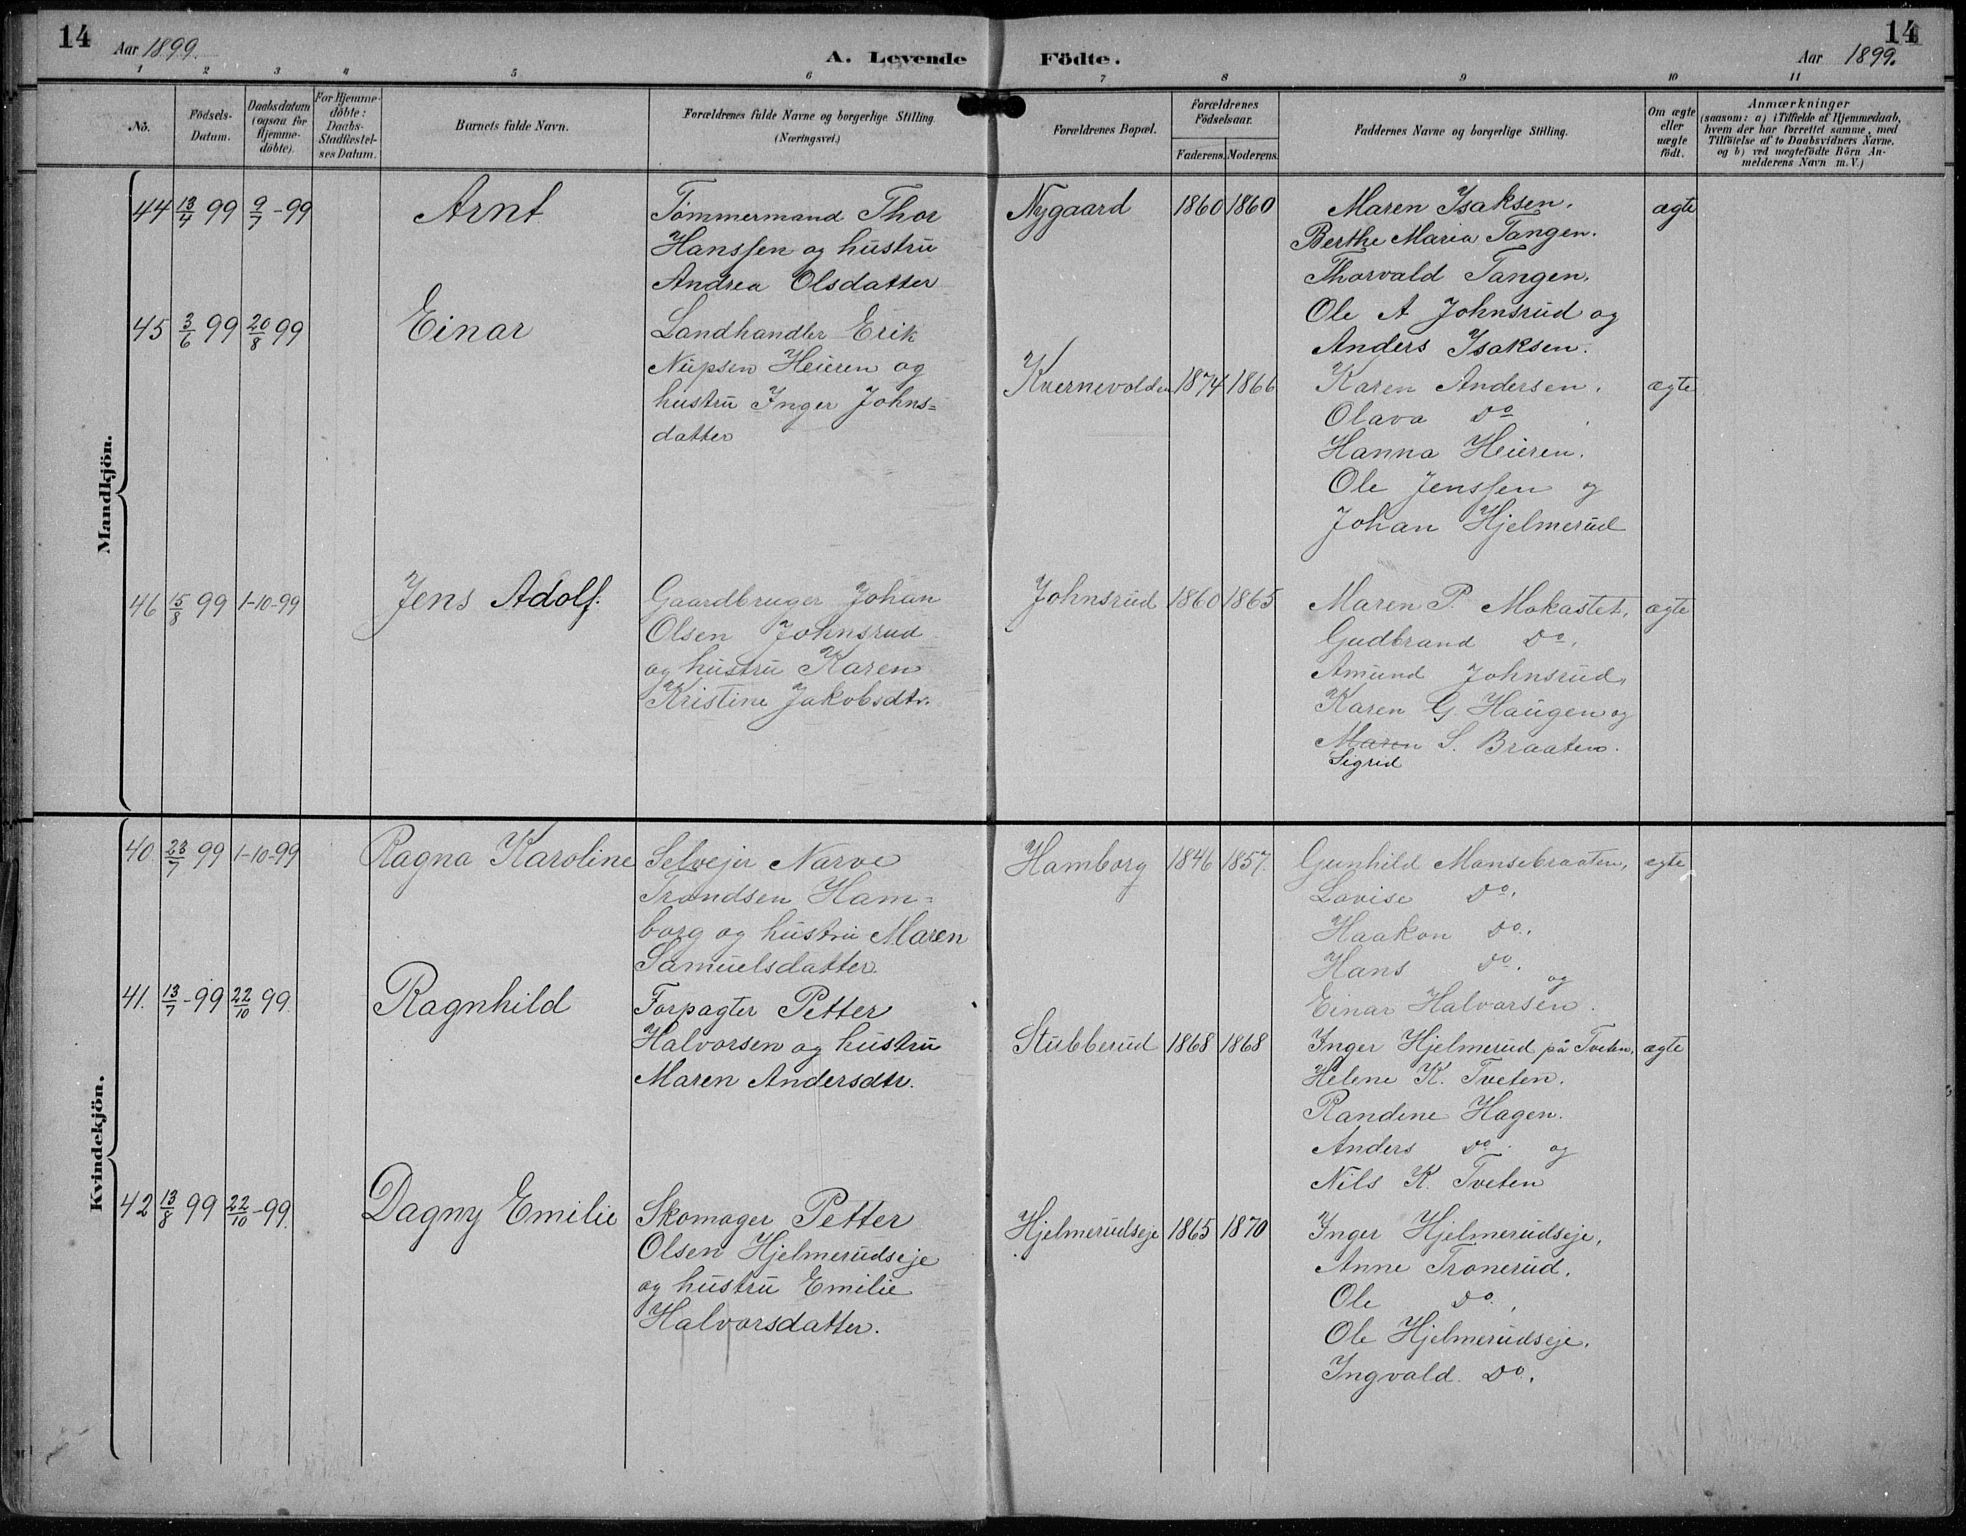 14
Aar 1899.
A. Levende Födte.
Aar 1899.
14
1 2 3 4 5 6 7 8 9 10 11
No.
Födsels-Datum.
Daabsdatum (ogsaa for Hjemme-döbte).
For Hjemme-döbte: Daabs-Stadfestel-ses Datum.
Barnets fulde Navn.
Forældrenes fulde Navne og borgerlige Stilling.
(Næringsvei.)
Forældrenes Bopæl.
Forældrenes Födselsaar.
Faderens. Moderens.
Faddernes Navne og borgerlige Stilling.
Om ægte eller uægte födt.
Anmærkninger
(saasom: a) i Tilfælde af Hjemmedaab,
hvem der har forrettet samme, med
Tilföielse af to Daabsvidners Navne,
og b) ved uægtefödte Börn An-
melderens Navn m. V.)
Mandkjön.
44 13/4 99 9/7-99 Arnt
Tømmermand Thor
Hanssen og hustru
Andrea Olsdatter
Nygaard 1860 1860
Maren Isaksen,
Berthe Maria Tangen.
Thorvald Tangen,
Ole A Johnsrud og
Anders Isaksen.
ægte
45 3/6 99 20/8 99 Einar
Landhandler Erik
Nupsen Heieren og
hustru Inger Johns=
datter
Kvernevolden 1874 1866
Karen Andersen,
Olava do
Hanna Heieren.
Ole Jenssen og
Johan Hjelmerud
ægte
46 15/8 99 1-10-99 Jens Adolf.
Gaardbruger Johan
Olsen Johnsrud
og hustru Karen
Kristine Jakobsdtr.
Johnsrud 1860 1865
Maren P. Mokastet,
Gudbrand do,
Amund Johnsrud,
Karen G. Haugen og
Maren S. Braaten.
Sigrid
ægte
Kvindekjön.
40. 23/7 99 1-10-99 Ragna Karoline
Selvejer Narve
Trondsen Ham=
borg og hustru Maren
Samuelsdatter.
Hamborg 1846 1857.
Gunhild Mansebraaten,
Lovise do.
Haakon do.
Hans do. og
Einar Halvorsen.
ægte
41. 13/7-99 22/10 99. Ragnhild
Forpagter Petter
Halvorsen og hustru
Maren Andersdtr.
Stubberud 1868 1868
Inger Hjelmerud på Tveten,
Helene K. Tveten.
Randine Hagen.
Anders do. og
Nils K. Tveten
ægte
42 13/8 99 22/10-99. Dagny Emilie
Skomager Petter
Olsen Hjelmerudseje
og hustru Emilie
Halvorsdatter.
Hjelmerudseje 1865 1870
Inger Hjelmerudseje,
Anne Tronerud,
Ole do.,
Ole Hjelmerudseje.
Ingvald. do.